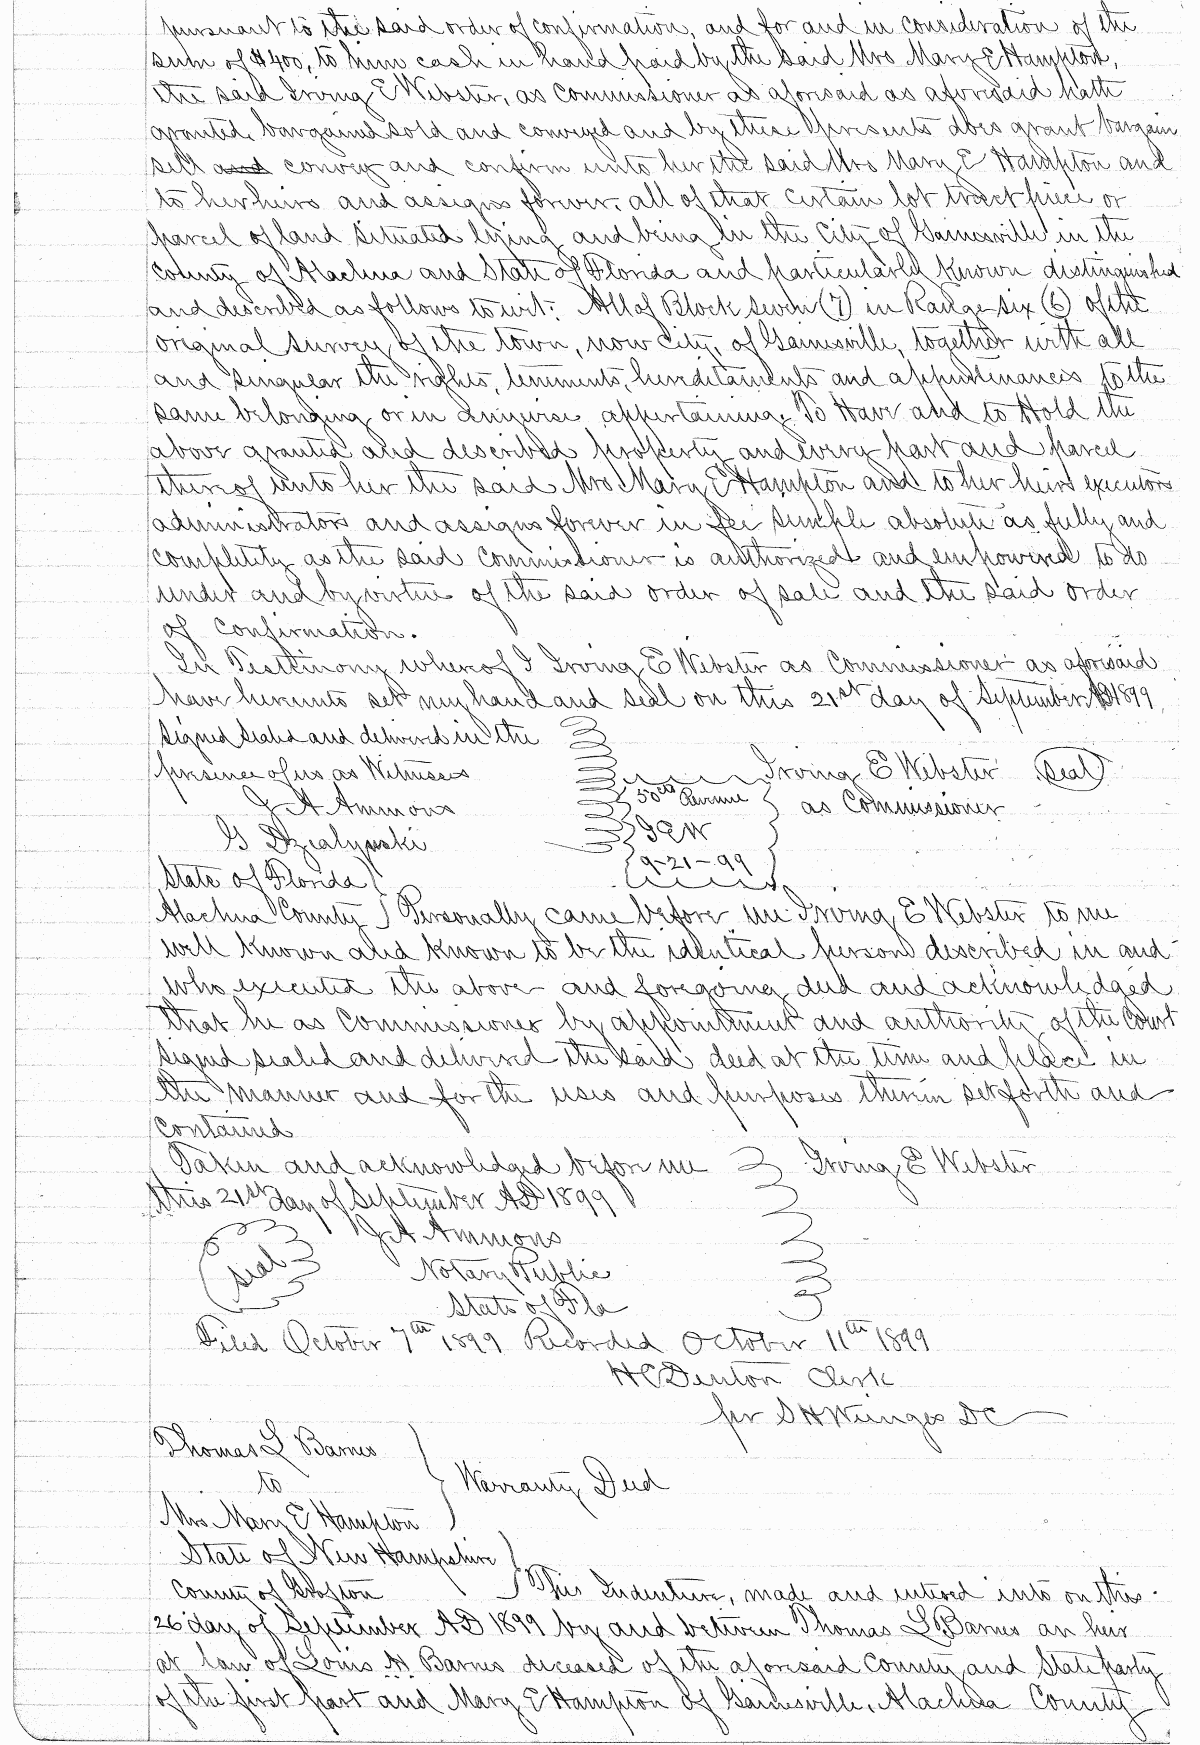 pursuant to the said order of confirmation, and for and in consideration of the
sum of $400, to him cash in hand paid by the said Mrs Mary E Hampton,
the said Irving E Webster, as Commissioner as aforesaid as aforesaid hath
granted, bargained sold and conveyed and by these presents does grant bargain
sell and convey and confirm unto her the said Mrs Mary E Hampton and
to her heirs and assigns forever, all of that certain lot tract piece or
parcel of land situated lying and being in the City of Gainesville in the
County of Alachua and State of Florida and particularly known distinguished
and described as follows to wit: All of Block seven (7) in Range six (6) of the
original survey of the town, now City, of Gainesville, together with all
and singular the rights, tenements, hereditaments and appurtenances to the
same belonging or in anywise appertaining. To Have and to Hold the
above granted and described property and every part and parcel
thereof unto her the said Mrs Mary E Hampton and to her heirs executors
administrators and assigns forever in fee simple absolute as fully and
completely as the said Commissioner is authorized and empowered to do
under and by virtue of the said order of sale and the said order
of confirmation.
In Testimony whereof I Irving E Webster as Commissioner as aforesaid
have hereunto set my hand and seal on this 21st day of September AD 1899
signed sealed and delivered in the
presence of us as Witnesses Irving E Webster (seal)
J A Ammons 50cts Revenue as Commissioner
G Dzialynski I E W
9-21-99
State of Florida
Alachua County } Personally came before me Irving E Webster to me
well known and known to be the identical person described in and
who executed the above and foregoing deed and acknowledged
that he as Commissioner by appointment and authority of the Court
signed sealed and delivered the said deed at the time and place in
the manner and for the uses and purposes therein set forth and
contained
Taken and acknowledged before me Irving E Webster
this 21st day of September AD 1899
J A Ammons
seal Notary Public
State of Fla
Filed October 7th 1899 Recorded October 11th 1899
H C Denton Clerk
per S H Wienges DC
Thomas L Barnes
to
Warranty Deed
Mrs Mary E Hampton
State of New Hampshire
County of Grafton } This Indenture, made and entered into on this
26 day of September AD 1899 by and between Thomas L Barnes an heir
at law of Louis H Barnes deceased of the aforesaid County and State party
of the first part and Mary E Hampton of Gainesville, Alachua County